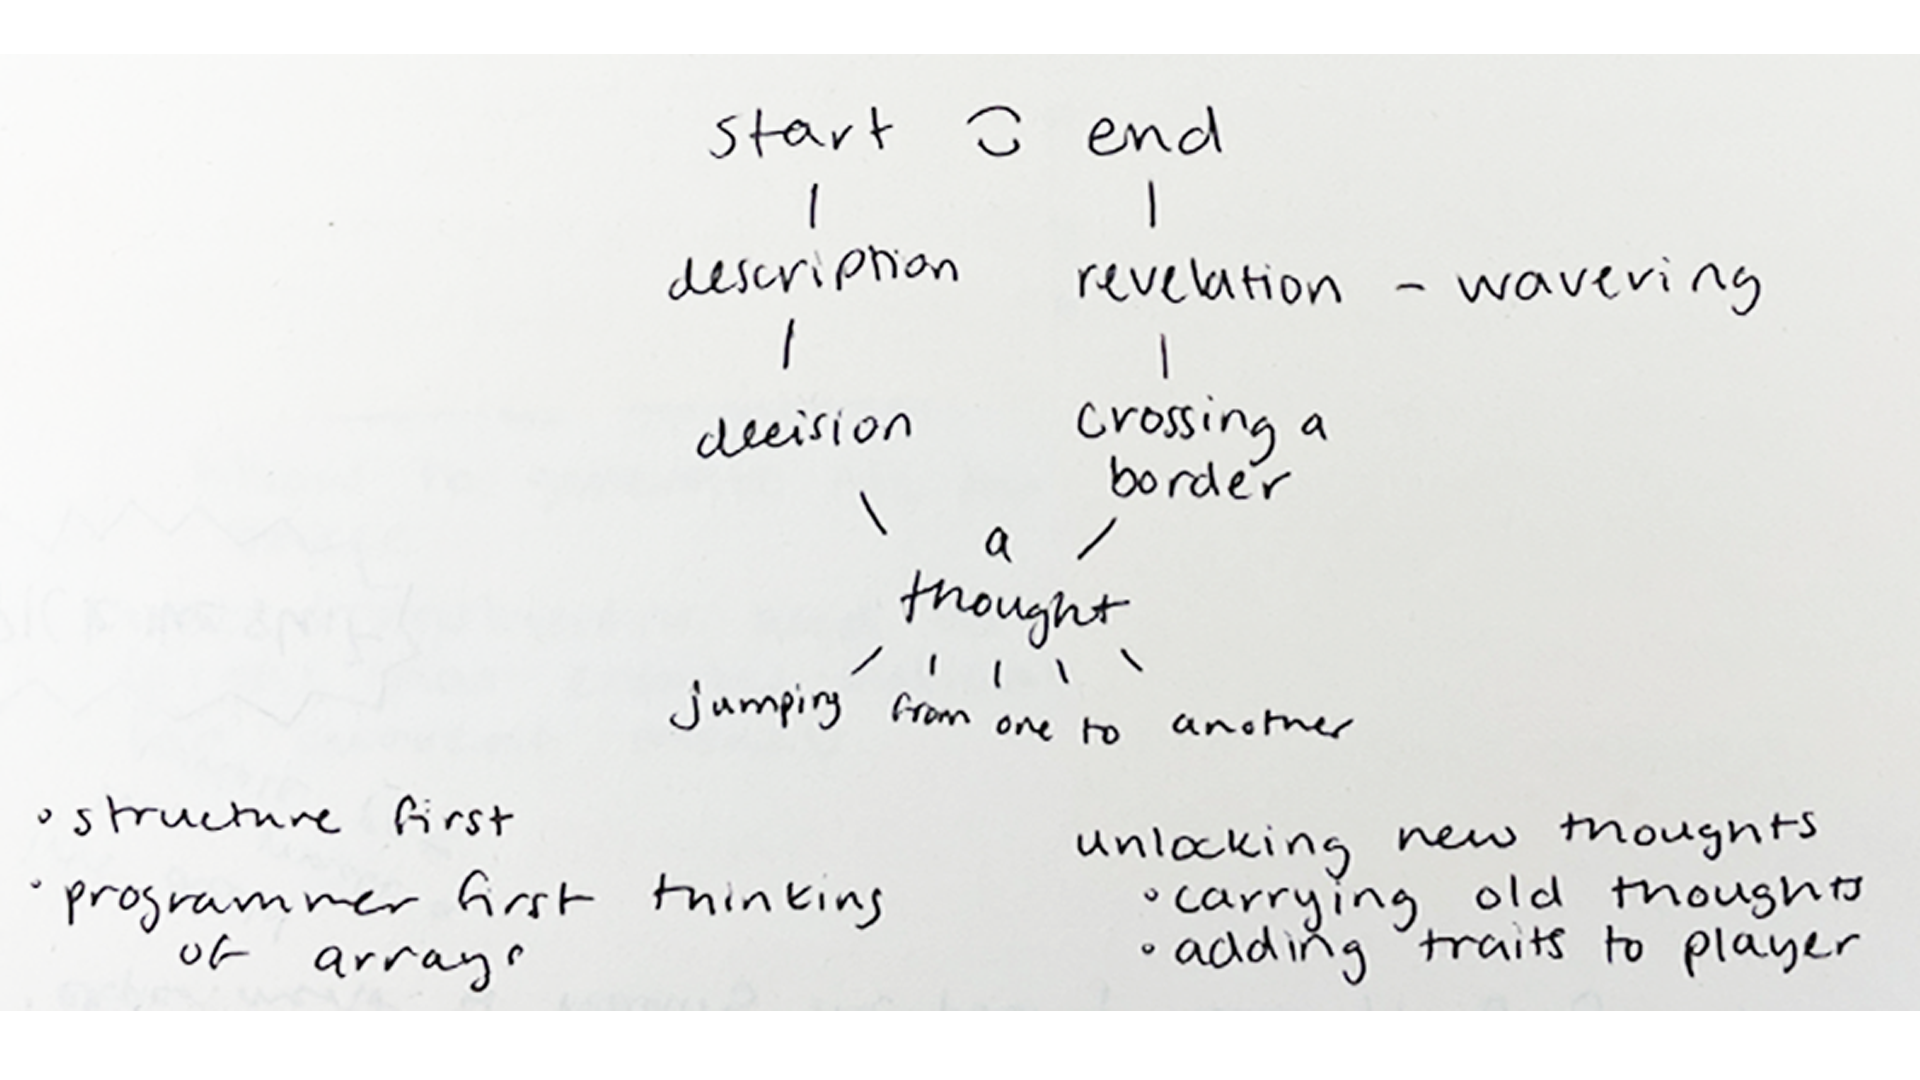 start end
description revelation - wavering
decision crossing a
border
a
thought
jumping from one to another
• structure first
• programmer first thinking
of arrays
unlocking new thoughts
• carrying old thoughts
• adding traits to player